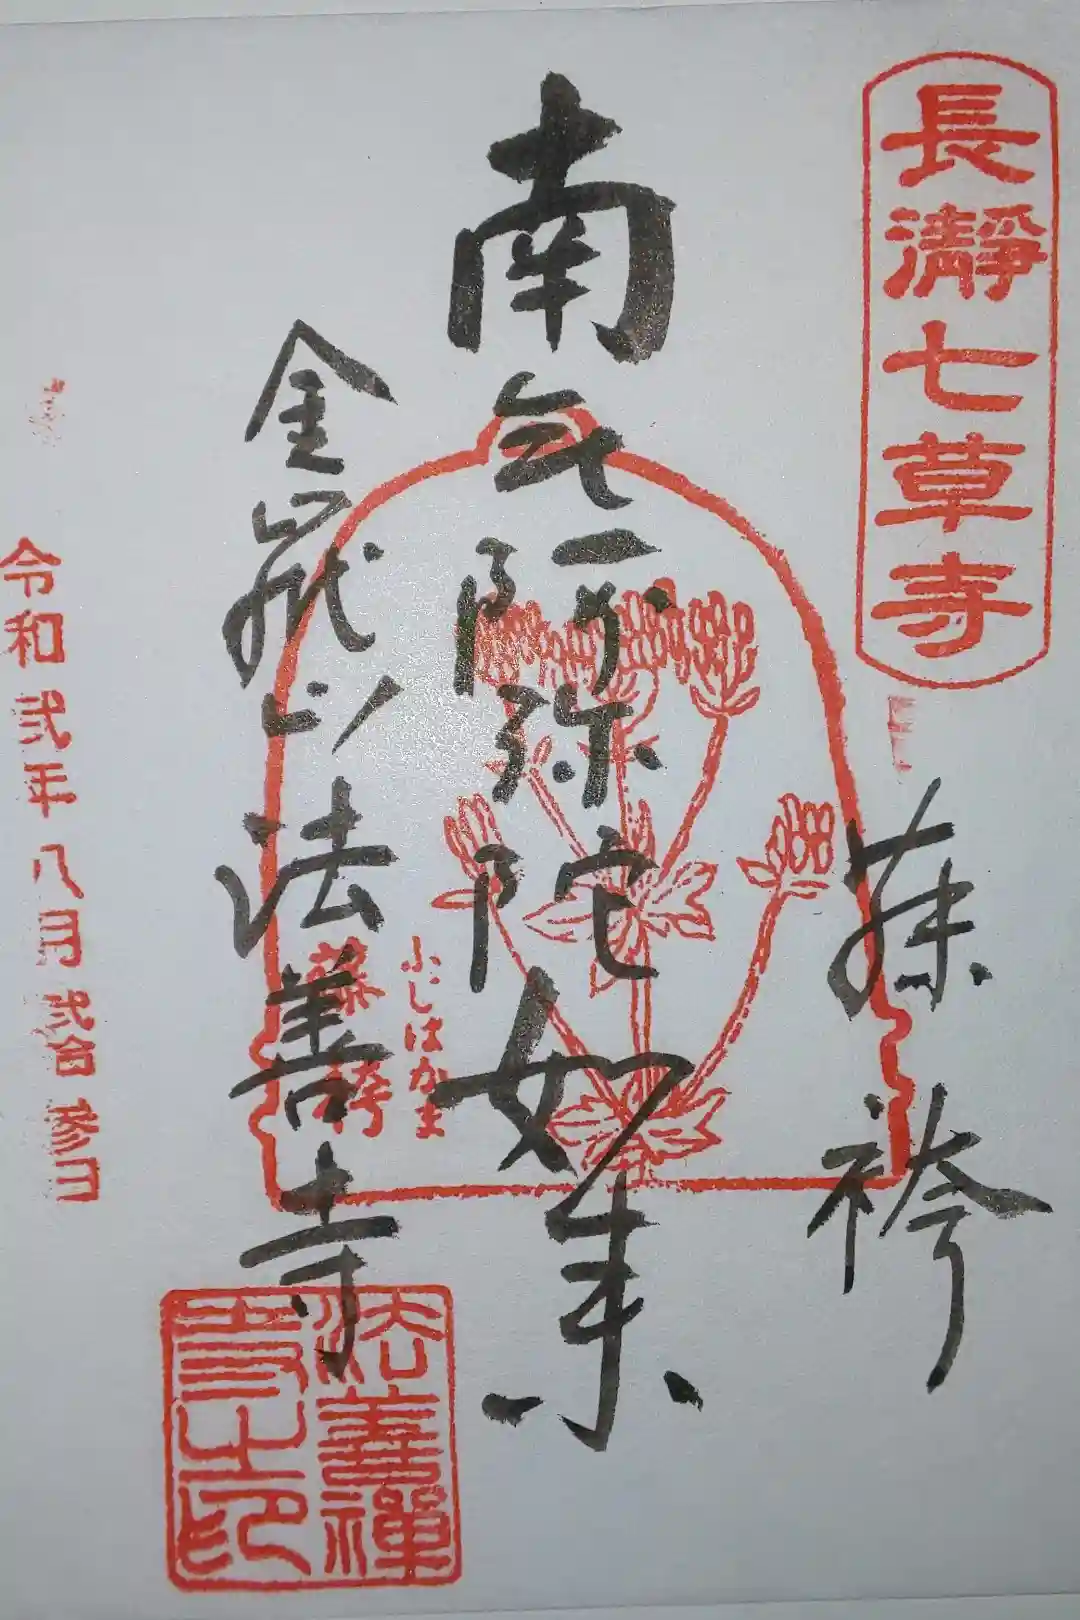 長瀞七草寺
藤袴
南無阿弥陀如来
ふじばかま
藤袴
金嶽山法善寺
法善禅
寺之印
令和弐年八月弐拾参日